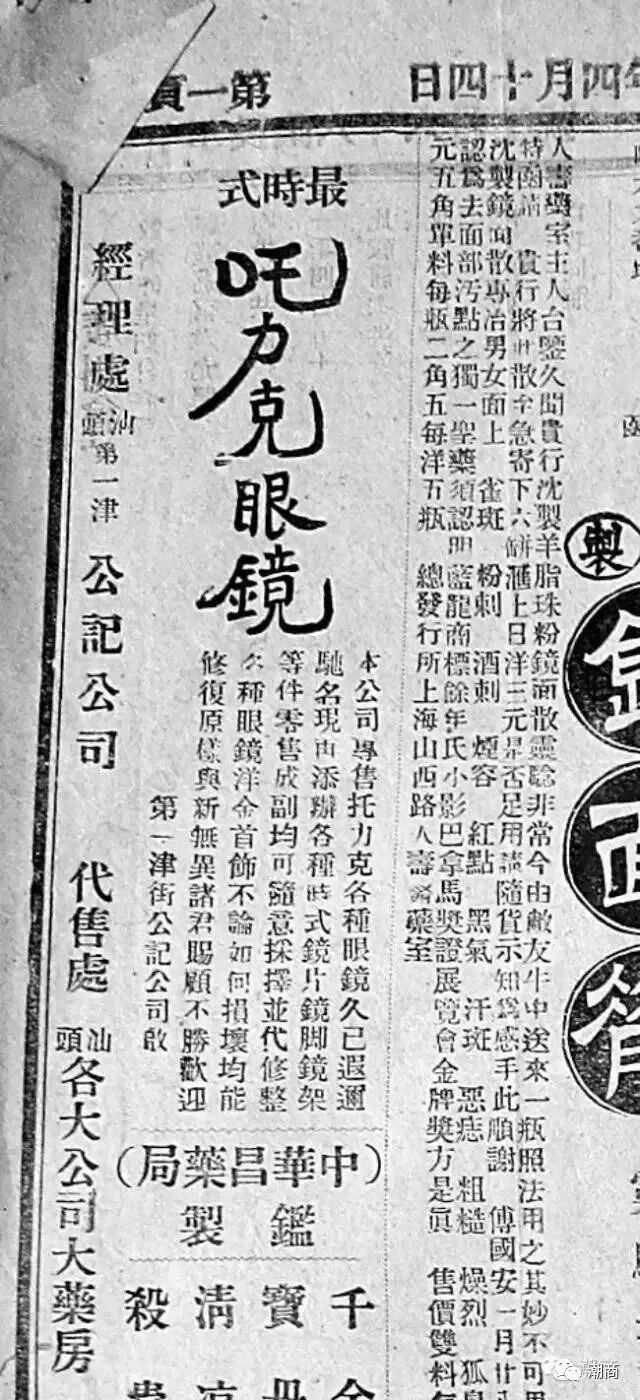 年四月十四日
第一頁
製
人壽藥室主人台鑒久聞貴行沈製羊脂珠粉鏡面散靈驗非常今由敝友牛中送來一瓶照法用之其妙不可
特函請 貴行將此散至急寄下六缾滙上日洋三元是否足用請隨貨示知爲感手此順謝 傅國安一月廿
沈製鏡面散專治男女面上 雀斑 粉刺 酒刺 煙容 紅點 黑氣 汗斑 惡痣 粗糙 燥烈 狐
認爲去面部汚點之獨一聖藥須認明藍龍商標餘年氏小影巴拿馬獎證展覽會金牌獎方是眞 售價雙料每
元五角單料每瓶二角五每洋五瓶 總發行所上海山西路人壽藥室
最時式
吒力克眼鏡
本公司專售托力克各種眼鏡久已遐邇
馳名現由添辦各種時式鏡片鏡脚鏡架
等件零售成副均可隨意採擇並代修整
各種眼鏡洋金首飾不論如何損壞均能
修復原樣與新無異諸君賜顧不勝歡迎
第一津街公記公司啟
經理處 汕頭第一津 公記公司 代售處 汕頭各大公司大藥房
(中華昌藥局)
鑑製
千金
寶丹
淸凉
殺
潮商